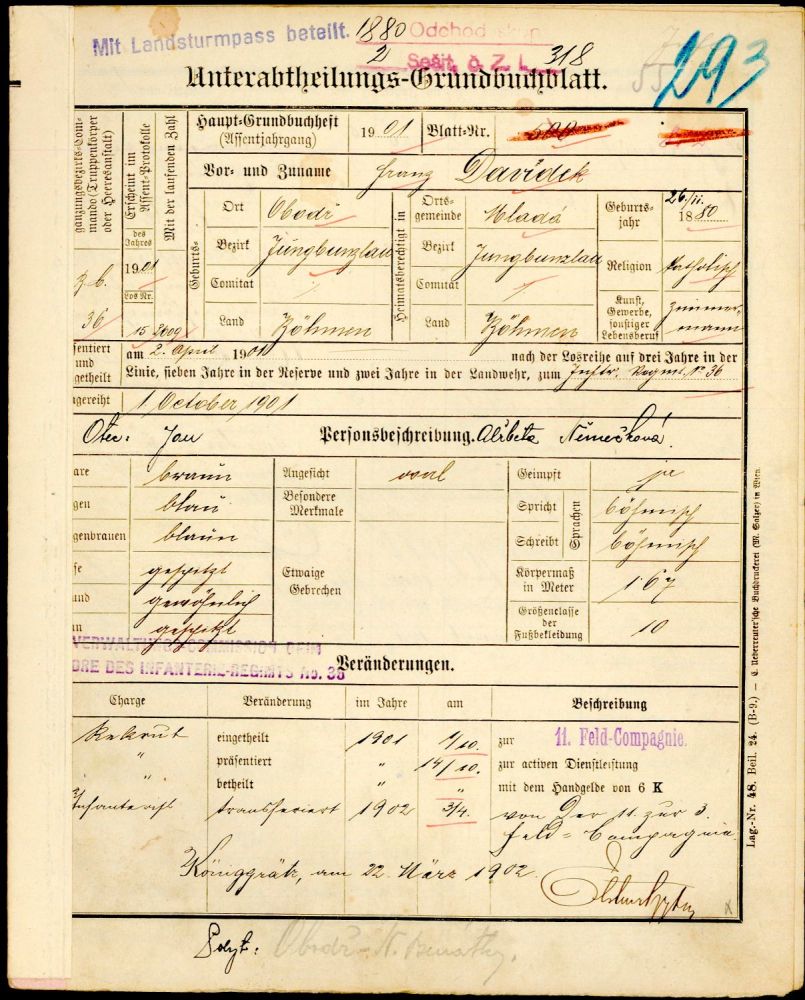 Mit Landsturmpass beteilt. 1880 Odchod
2 Sešit. č. Z. L. 318
293
Unterabtheilungs-Grundbuchblatt.
gänzungsbezirks-Com-
mando (Truppenkörper
oder Heeresanstalt)
Erscheint im
Assent-Protokolle
Mit der laufenden Zahl
des
Jahres
1901
Los Nr.
36
15 2609
Haupt-Grundbuchheft
(Assentjahrgang)
1901
Blatt-Nr.
Vor- und Zuname Franz Davidek
Geburts-
Ort Obodř
Bezirk Jungbunzlau
Comitat
Land Böhmen
Heimatsberechtigt in
Orts-
gemeinde Mladá
Bezirk Jungbunzlau
Comitat
Land Böhmen
Geburts-
jahr
26/II.
1880
Religion katholisch
Kunst,
Gewerbe,
sonstiger
Lebensberuf
Zimmer-
mann
sentiert
und
getheilt
am 2. April 1901 nach der Losreihe auf drei Jahre in der
Linie, sieben Jahre in der Reserve und zwei Jahre in der Landwehr, zum Inftr. Regmt. Nº 36
ngereiht 1 October 1901
Otec: Jan Personsbeschreibung. Alžbeta Němečková.
are braun
gen blau
genbrauen blaun
se gespitzt
und gewöhnlich
nn gespitzt
Angesicht oval
Besondere
Merkmale
Etwaige
Gebrechen
Geimpft ja
Sprachen
Spricht böhmisch
Schreibt böhmisch
Körpermaß
in Meter 1·67
Größenclasse
der
Fußbekleidung 10
VERWALTUNGS-COMMISSION BEIM
DRE DES INFANTERIE-REGIMTS No. 36
Veränderungen.
Charge Veränderung im Jahre am Beschreibung
Rekrut eingetheilt 1901 1/10. zur 11. Feld-Compagnie.
" präsentiert " 14/10. zur activen Dienstleistung
" betheilt " " mit dem Handgelde von 6 K
Infanterist transferiert 1902 3/4. von der 11. zur 3.
Feld-Compagnie.
Königgrätz, am 22. März 1902.
Obodř - N. Benátky.
Lag.-Nr. 48. Beil. 24. (B-9.) — C. Ueberreuter'sche Buchdruckerei (M. Salzer) in Wien.